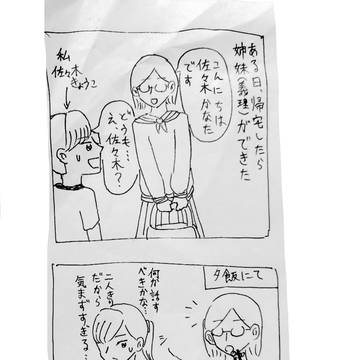 ある日、帰宅したら
姉妹(義理)ができた
こんにちは
佐々木かなた
です
どうも…
え、佐々木?
私
佐々木
きょうこ
夕飯にて
何か話す
べきかな…
二人きり
だから
気まずすぎる…